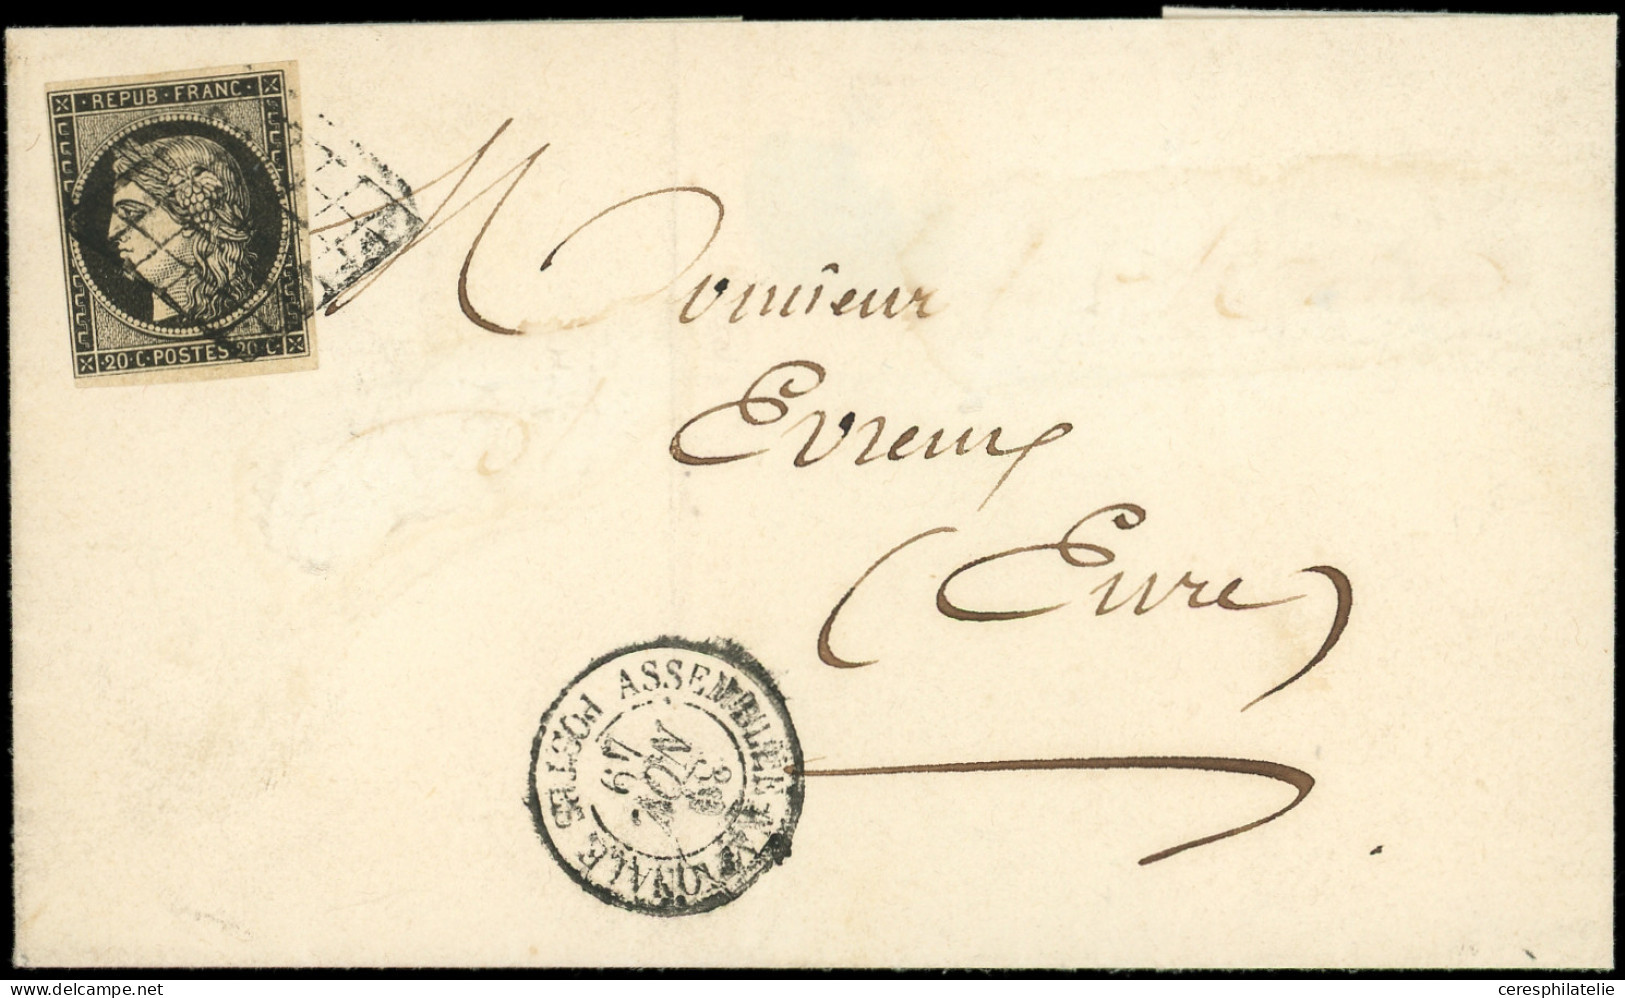 REPUB · FRANC ·
· 20 · C · POSTES · 20 · C ·
Monsieur
Evreux
(Eure)
POSTES ASSEMBLÉE NATIONALE
NOV
49
delcampe.net
ceresphilatelie